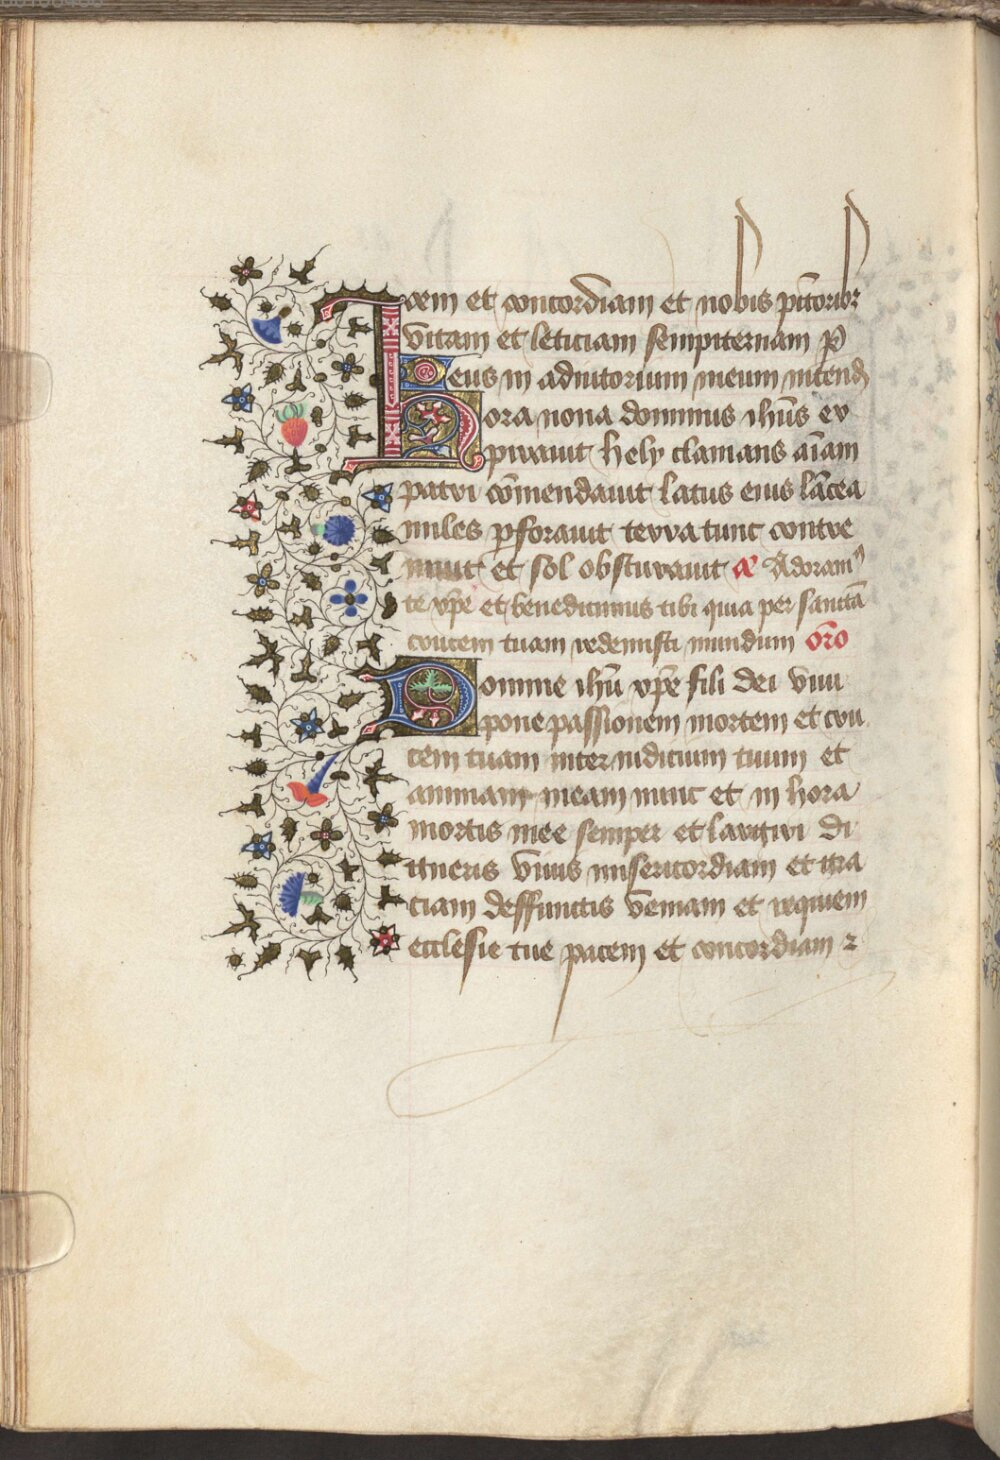 cem et concordiam et nobis pc̄toribz
vitam et leticiam sempiternam p
Deus in adiutorium meum intend
Hora nona dominus ihūs ex
piravit hely clamans aīam
patri cōmendavit latus eius lācea
miles pforavit terra tunc contre
muit et sol obscuravit Adoram
te xp̄e et benedicimus tibi quia per sanctā
crucem tuam redemisti mundum or̄o
Domine ihū xp̄e fili dei vivi
pone passionem mortem et cru
cem tuam inter iudicium tuum et
animam meam nunc et in hora
mortis mee semper et largiri di
gneris vivis misericordiam et gra
ciam deffunctis veniam et requiem
ecclesie tue pacem et concordiam ꝛ